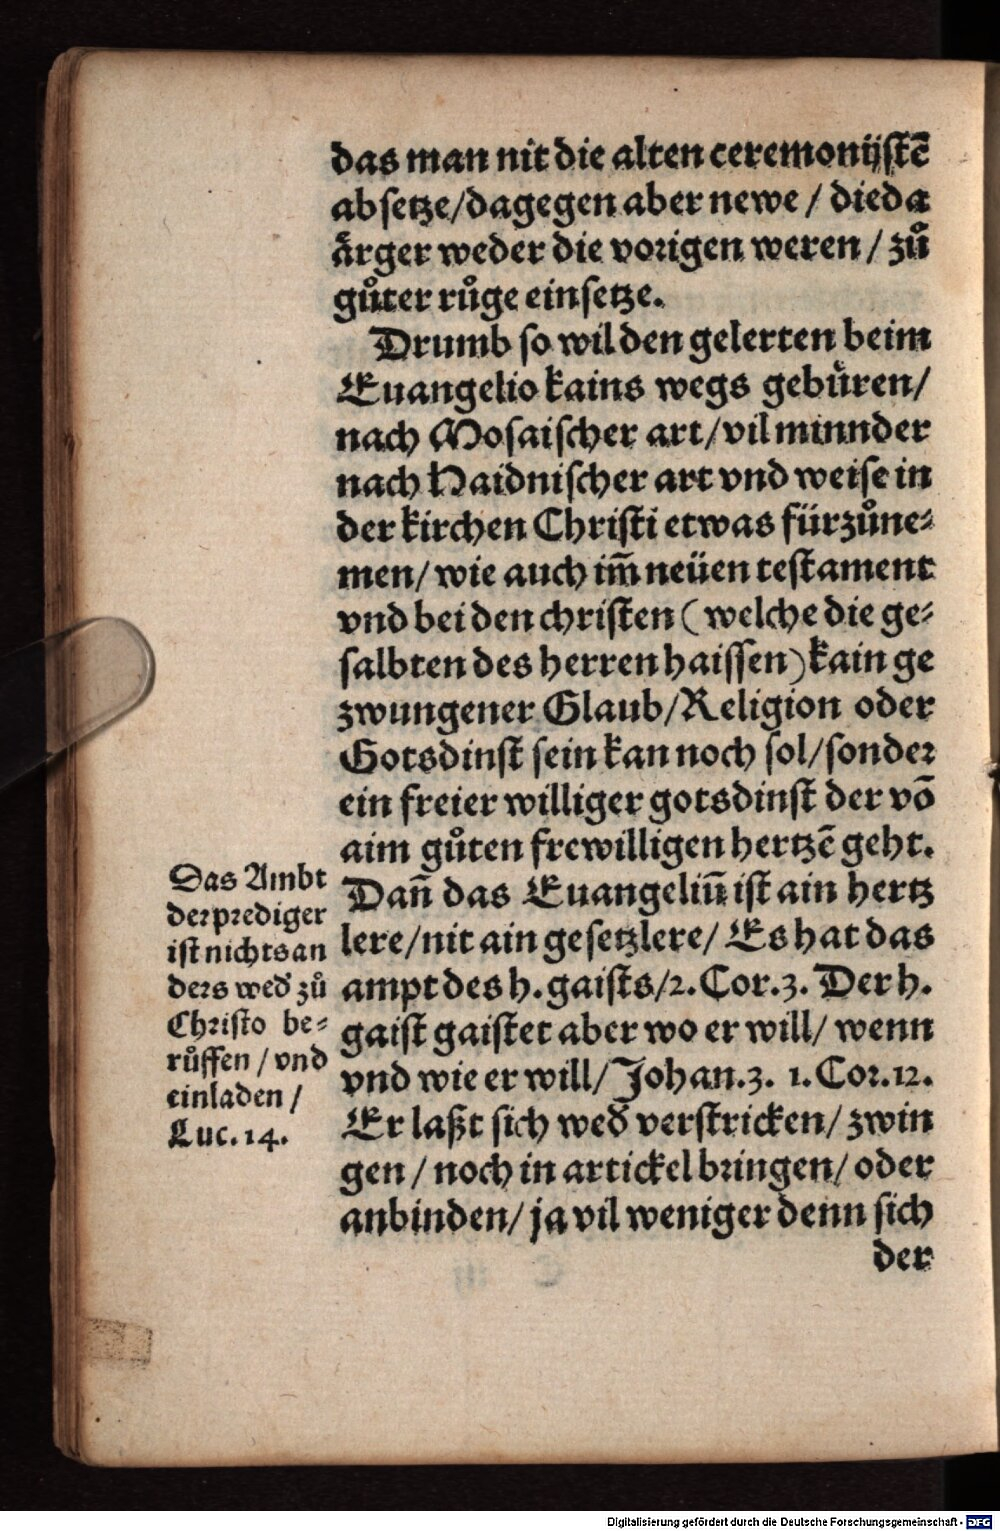 das man nit die alten ceremonijstē
absetze/dagegen aber newe / die da
ärger weder die vorigen weren / zů
gůter růge einsetze.
Drumb so wil den gelerten beim
Euangelio kains wegs gebüren/
nach Mosaischer art/vil minnder
nach Haidnischer art vnd weise in
der kirchen Christi etwas fürzůne⸗
men/ wie auch im̄ neüen testament
vnd bei den christen ( welche die ge⸗
salbten des herren haissen) kain ge
zwungener Glaub/Religion oder
Gotsdinst sein kan noch sol/sonder
ein freier williger gotsdinst der võ
aim gůten frewilligen hertzē geht.
Dañ das Euangeliū ist ain hertz
lere/nit ain gesetzlere/ Es hat das
ampt des h. gaists/2. Cor.3. Der h.
gaist gaistet aber wo er will/ wenn
vnd wie er will/Johan.3. 1. Cor.12.
Er laßt sich wed̕ verstricken/ zwin
gen / noch in artickel bringen/ oder
anbinden/ ja vil weniger denn sich
der
Das Ambt
der prediger
ist nichts an
ders wed̕ zů
Christo be⸗
růffen / vnd
einladen /
Luc. 14.
Digitalisierung gefördert durch die Deutsche Forschungsgemeinschaft - DFG